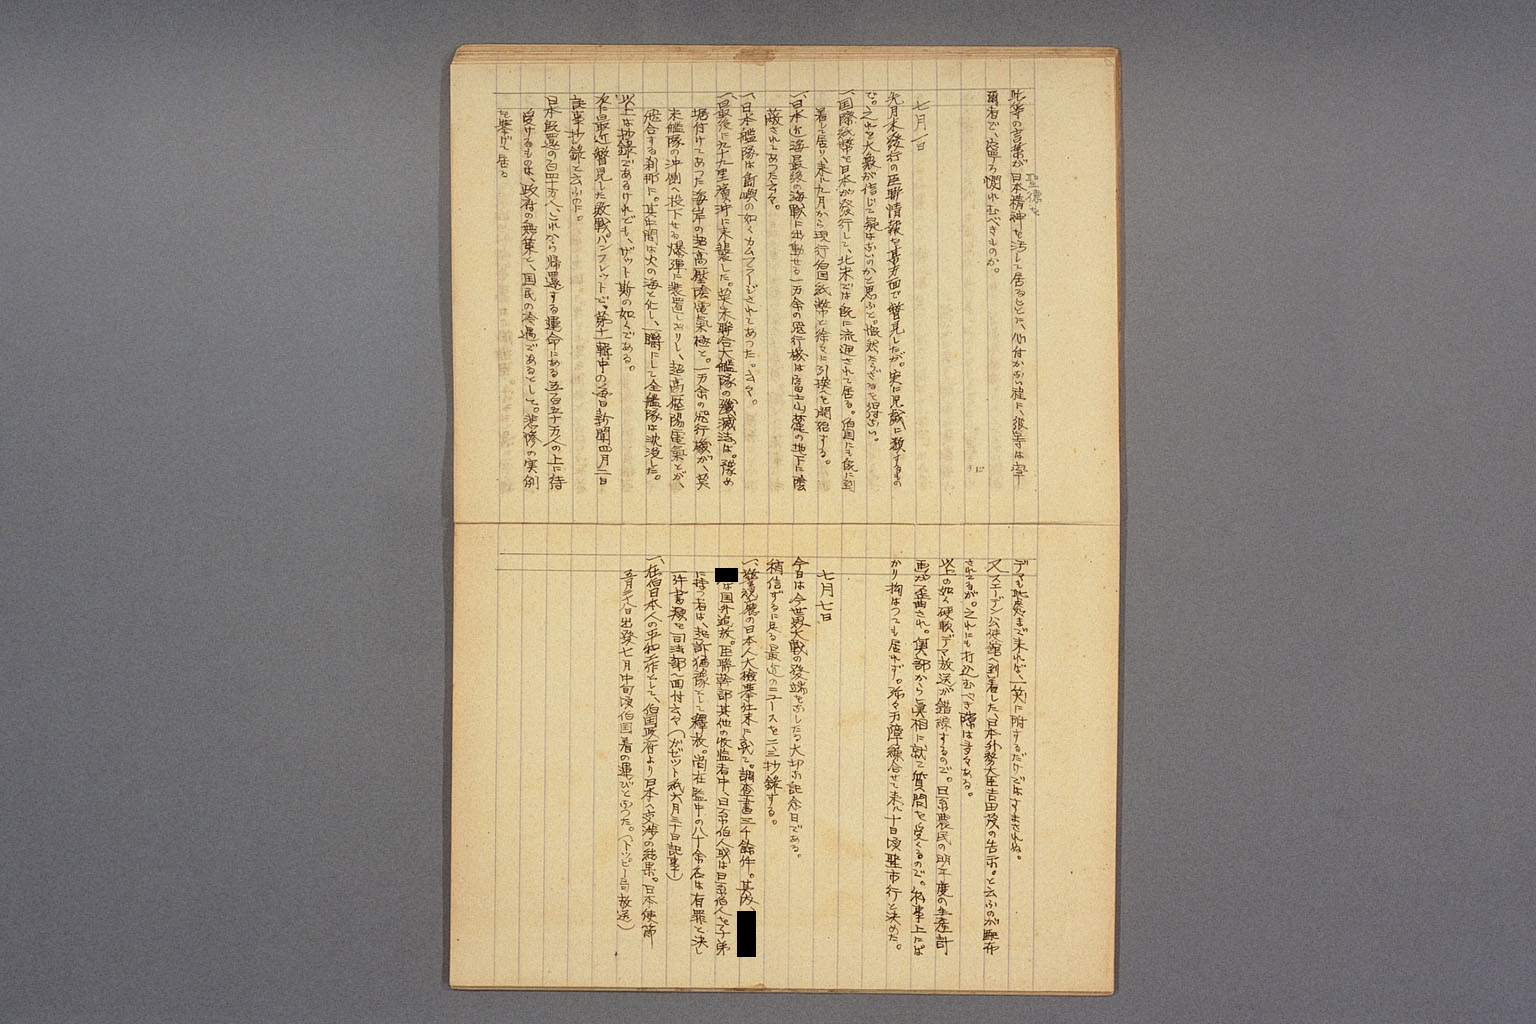 此等の言葉が日本精神を汚して居ることに、心付かない程に、彼等は
聖徳を
者で、寧ろ憫れむべきものか。
七月一日
先月末発行の臣聯情報を某方面で瞥見したが。実に児戯に
で。之れを大衆が信じて疑はないのかと思ふと。
一、国際紙幣を日本が発行して、北米では既に流通されて居る。伯国にも既に到
着して居り、来ル九月から現行伯国紙幣と徐々に引換へを開始する。
一、日本近海最後の海戦に出動せる一万余の飛行機は富士山麓の地下に隠
蔽されてあつた云々。
一、日本艦隊は島嶼の如くカムフラージされてあつた。云々。
一、最後に九十九里濱沖に来襲した。英米聯合大艦隊の殲滅法は。豫め
据付けてあつた海岸の超高圧陰電気極と。一万余の飛行機が、英
米艦隊の沖側へ投下せる爆弾に装置しありし、超高圧陽電氣とが、
合する刹那に。其中間は火の海と化し、一瞬にして全艦隊は沈没した。
以上は抄録であるけれども、ザット斯の如くである。
次に最近瞥見した敗戦パンフレットで、第十一輯中の毎日新聞四月二日
記事抄録と云ふのに。
日本敗還の百四十万人、これから帰還する運命にある五百五十万人の上に待
受けるものは、政府の無策と、国民の冷遇であるとして。悲惨の実例
を挙げて居る
デマも此處まで来れば、一笑に附するだけではすまされぬ。
又スエーデン公使館へ到着した、日本外務大臣吉田茂の告示。と云ふのが配布
されてるが。之れにも打込むべき隙は多々ある。
以上の如く硬軟デマ放送が錯綜するので。日系農民の明年度の生産計
画が歪曲され。奥部から真相に就て質問を受くるので。我事上にば
かり拘はつても居れず。弥々万障繰合せて来ル十日頃聖市行と決めた。
七月七日
今日は今世界大戦の発端をなしたる大切な記念日である。
稍信ずるに足る最近のニュースを二三抄録する。
一、警視廳の日本人大検挙始末に就て。調査書三千餘件。其内、
は国外追放。臣聯幹部其他の収監者中、日系伯人或は日系伯人を子弟
に持つ者は、起訴猶豫として釈放。尚在監中の八十余名は有罪と決し
一件書類を司法部へ回付云々（ガゼット紙六月三十日記事）
一、在伯日本人の平和工作として、伯国政府より日本へ交渉の結果。日本使節
五月廿八日出発七月中旬頃伯国着の運びとなつた。（トッピー局放送）